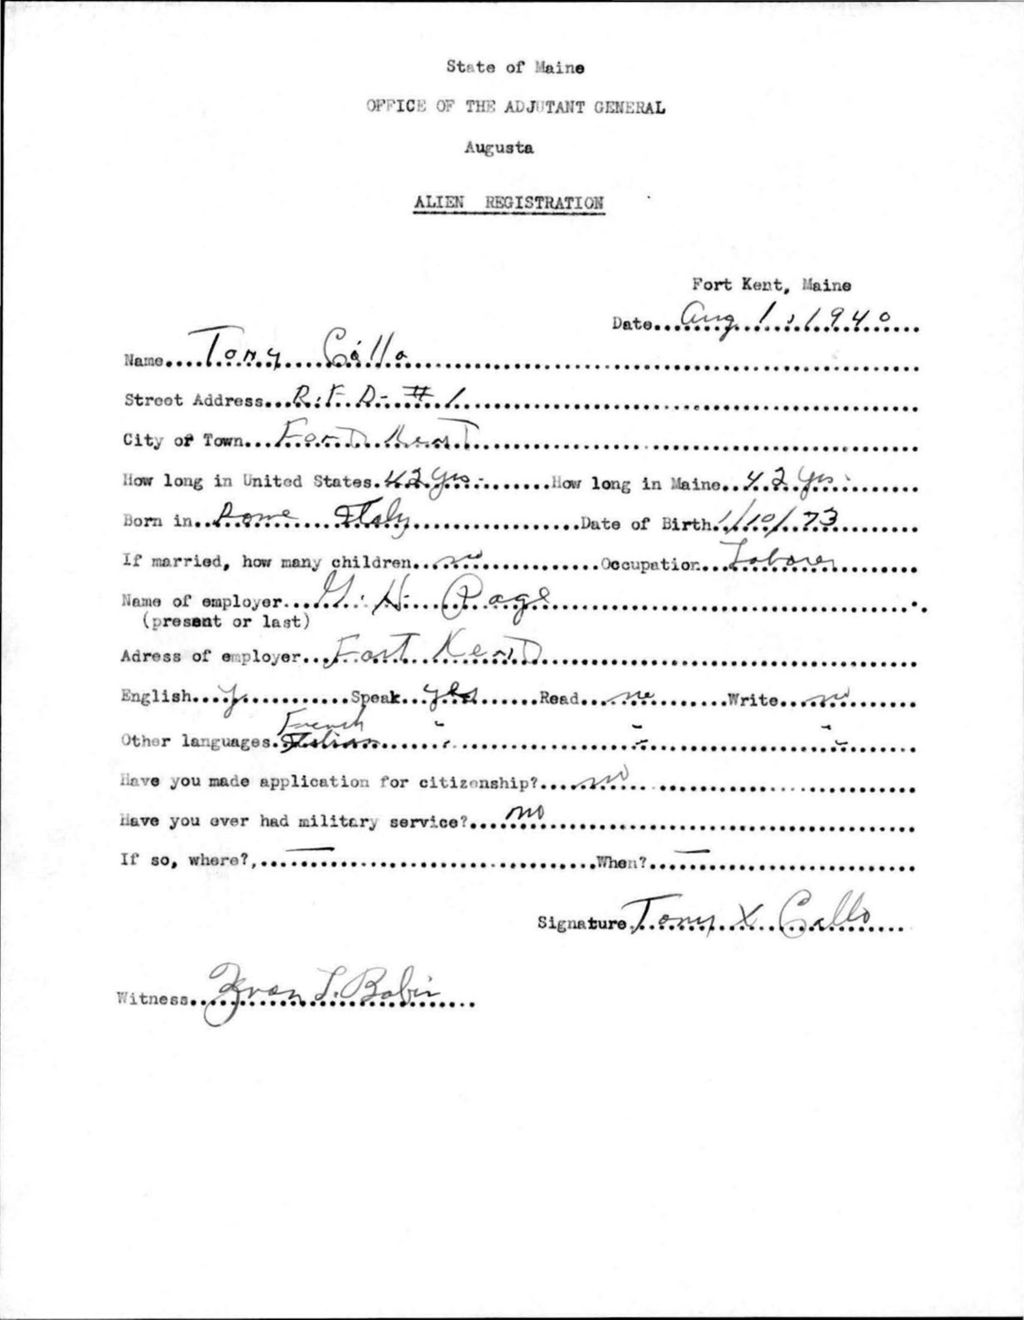 State of Maine
OFFICE OF THE ADJUTANT GENERAL
Augusta
ALIEN REGISTRATION
Fort Kent, Maine
Date...Aug 1, 1940...
Name....Tony Callo...
Street Address...R.F.D- #1...
City or Town...Fort Kent...
How long in United States.42 yrs.-...How long in Maine...42 yrs....
Born in...Rome Italy...Date of Birth.1/10/73...
If married, how many children...no...Occupation...Laborer...
Name of employer...H. Page...
(present or last)
Adress of employer...Fort Kent...
English....y...Speak...yes...Read...no...Write...no...
French " " "
Other languages.Italian... " " "
Have you made application for citizenship?...no...
Have you ever had military service?...no...
If so, where?,...—...When?...—...
Signature.Tony X Callo...
Witness...L. Bobin...